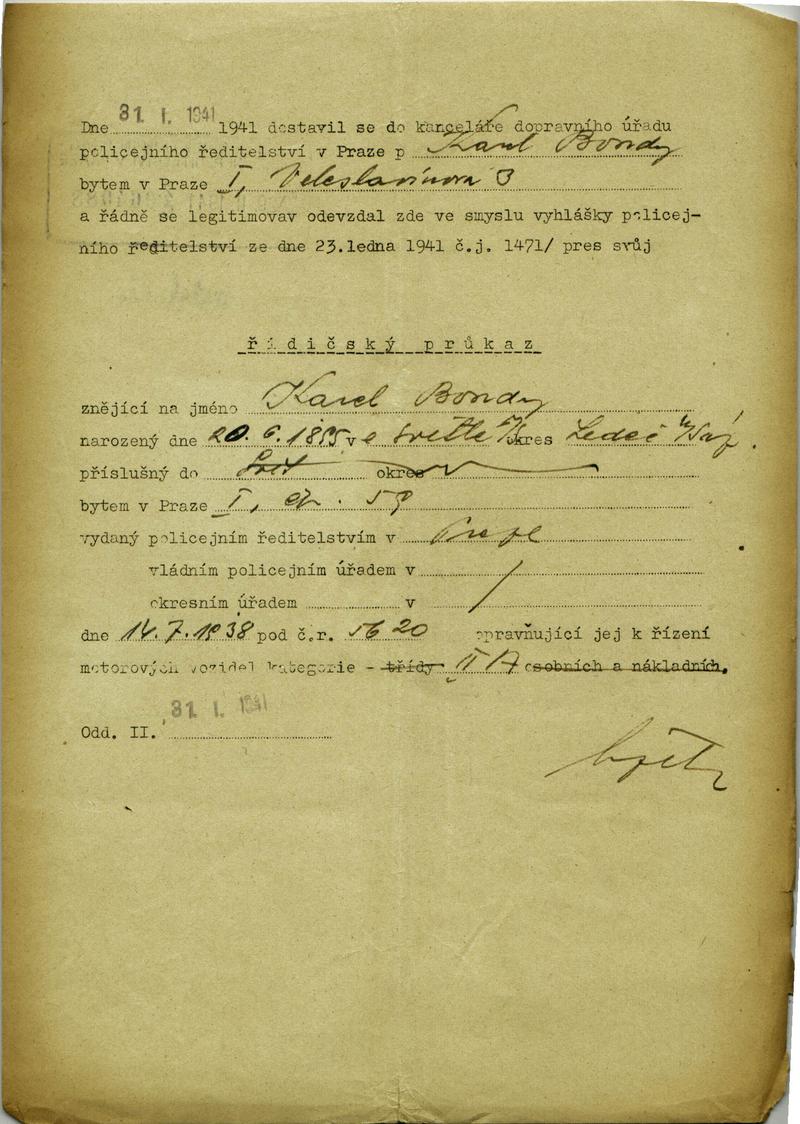 Dne 31. I. 1941 1941 dostavil se do kanceláře dopravního úřadu
policejního ředitelství v Praze p Karel Bondy
bytem v Praze I, Veleslavínova 3
a řádně se legitimovav odevzdal zde ve smyslu vyhlášky policej-
ního ředitelství ze dne 23.ledna 1941 č.j. 1471/ pres svůj
řidičský průkaz
znějící na jméno Karel Bondy
narozený dne 20. 6. 1885 v e Světlé n/S okres Ledeč n/Sáz.
příslušný do Svět okres
bytem v Praze I, čp. 59
vydaný policejním ředitelstvím v Praze
vládním policejním úřadem v /
okresním úřadem v
dne 14.7.1938 pod č.r. 5620 opravňující jej k řízení
motorových vozidel kategorie - třídy II A osobních a nákladních.
31. I. 1941
Odd. II.